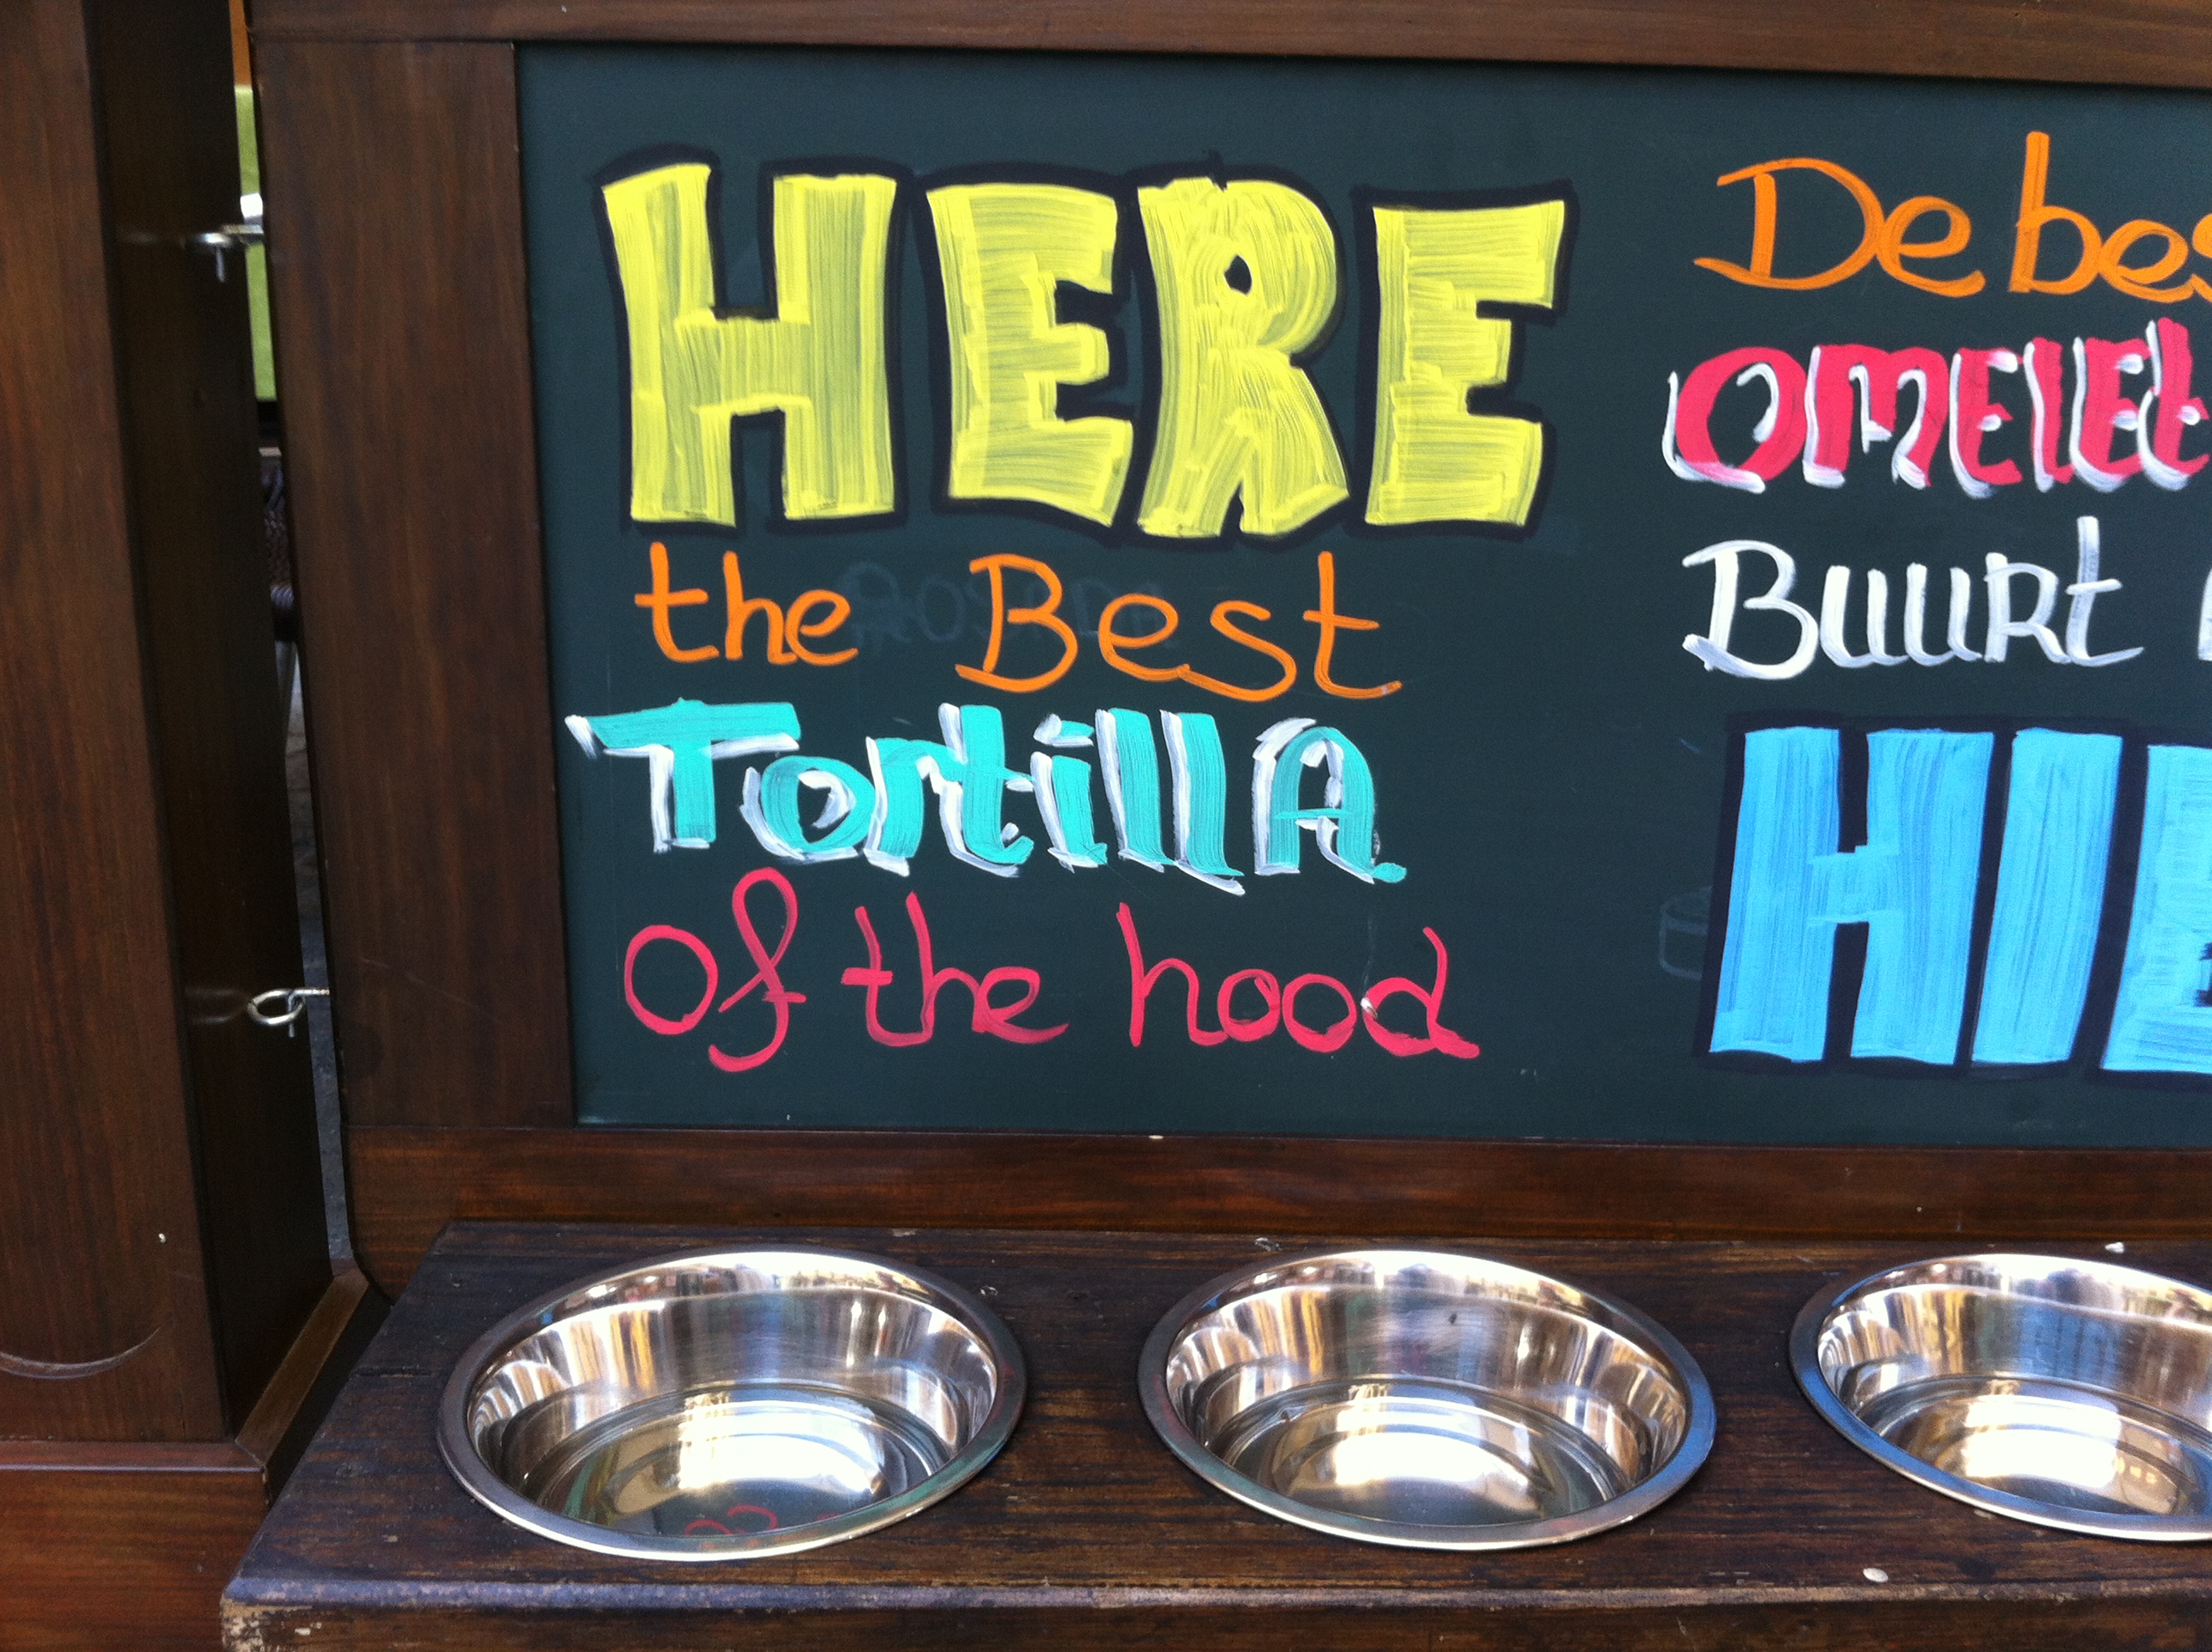 HERE
the Best
Tortilla
Of the hood
De
OMELET
BUURt